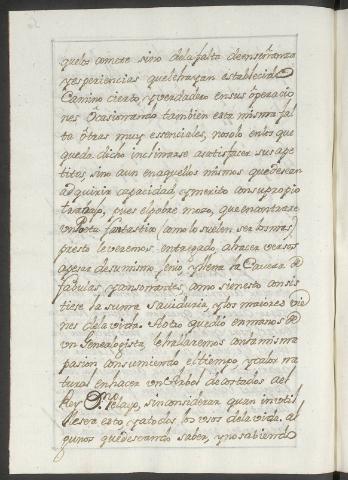 que los comete sino de la falta de enseñanza
y esperiencias que les hayan establecido
Camino cierto, y verdadero en sus operacio
nes Ocasionando tambien esta misma fal
ta otras muy essenciales, no solo en los que
queda dicho inclinarse a satisfacer sus ape
titos, sino aun en aquellos mismos que desean
adquirir capacidad, y merito con su propio
trabajo, pues el pobre mozo, que encontrare
un Poeta fantastico (como lo suelen ser los mas)
presto le veremos, entregado, a hacer versos
apesar de su mismo genio, y llena la Caveza de
fabulas, y consonantes, como si en esto consis
tiese la suma Saviduria, y los maiores vie
nes de la vida. Al otro que dio en manos de
un Genealogista, le hallaremos con la misma
pasion consumiendo el tiempo, y calor na
tural en hacer un Arbol de costados del
Rey Dn. Pelayo, sin considerar quan inutil
lesera esto, y a todos los usos de la vida. Al
gunos que deseando saber, y no sabiendo